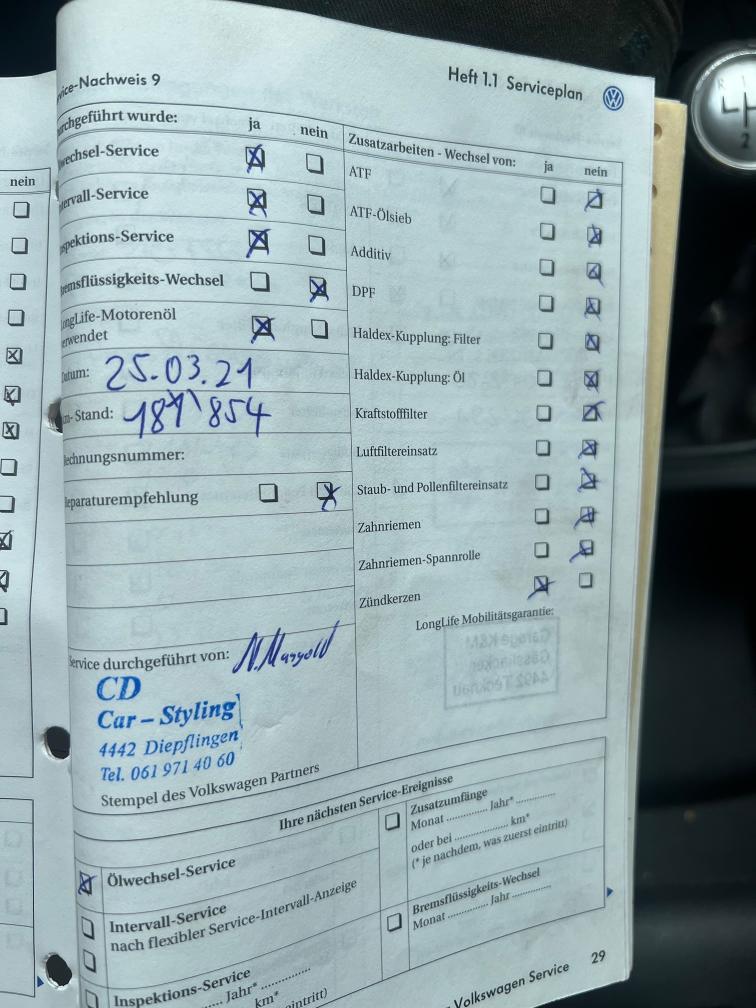 Heft 1.1 Serviceplan
vice-Nachweis 9
nein
urchgeführt wurde:
ja
nein
wechsel-Service
ervall-Service
spektions-Service
remsflüssigkeits-Wechsel
ongLife-Motorenöl
erwendet
atum: 25.03.21
m-Stand: 181'854
echnungsnummer:
eparaturempfehlung
Service durchgeführt von:
CD
Car-Styling
4442 Diepflingen
Tel. 061 971 40 60
Stempel des Volkswagen Partners
Zusatzarbeiten - Wechsel von:
ja
nein
ATF
ATF-Ölsieb
Additiv
DPF
Haldex-Kupplung: Filter
Haldex-Kupplung: Öl
Kraftstofffilter
Luftfiltereinsatz
Staub- und Pollenfiltereinsatz
Zahnriemen
Zahnriemen-Spannrolle
Zündkerzen
LongLife Mobilitätsgarantie:
Ihre nächsten Service-Ereignisse
Ölwechsel-Service
Intervall-Service
nach flexibler Service-Intervall-Anzeige
Inspektions-Service
Jahr* ..............
km*
eintritt)
Zusatzumfänge
Monat ............ Jahr* ..............
oder bei .................. km*
(* je nachdem, was zuerst eintritt)
Bremsflüssigkeits-Wechsel
Monat ............ Jahr ..............
Volkswagen Service
29
R
2